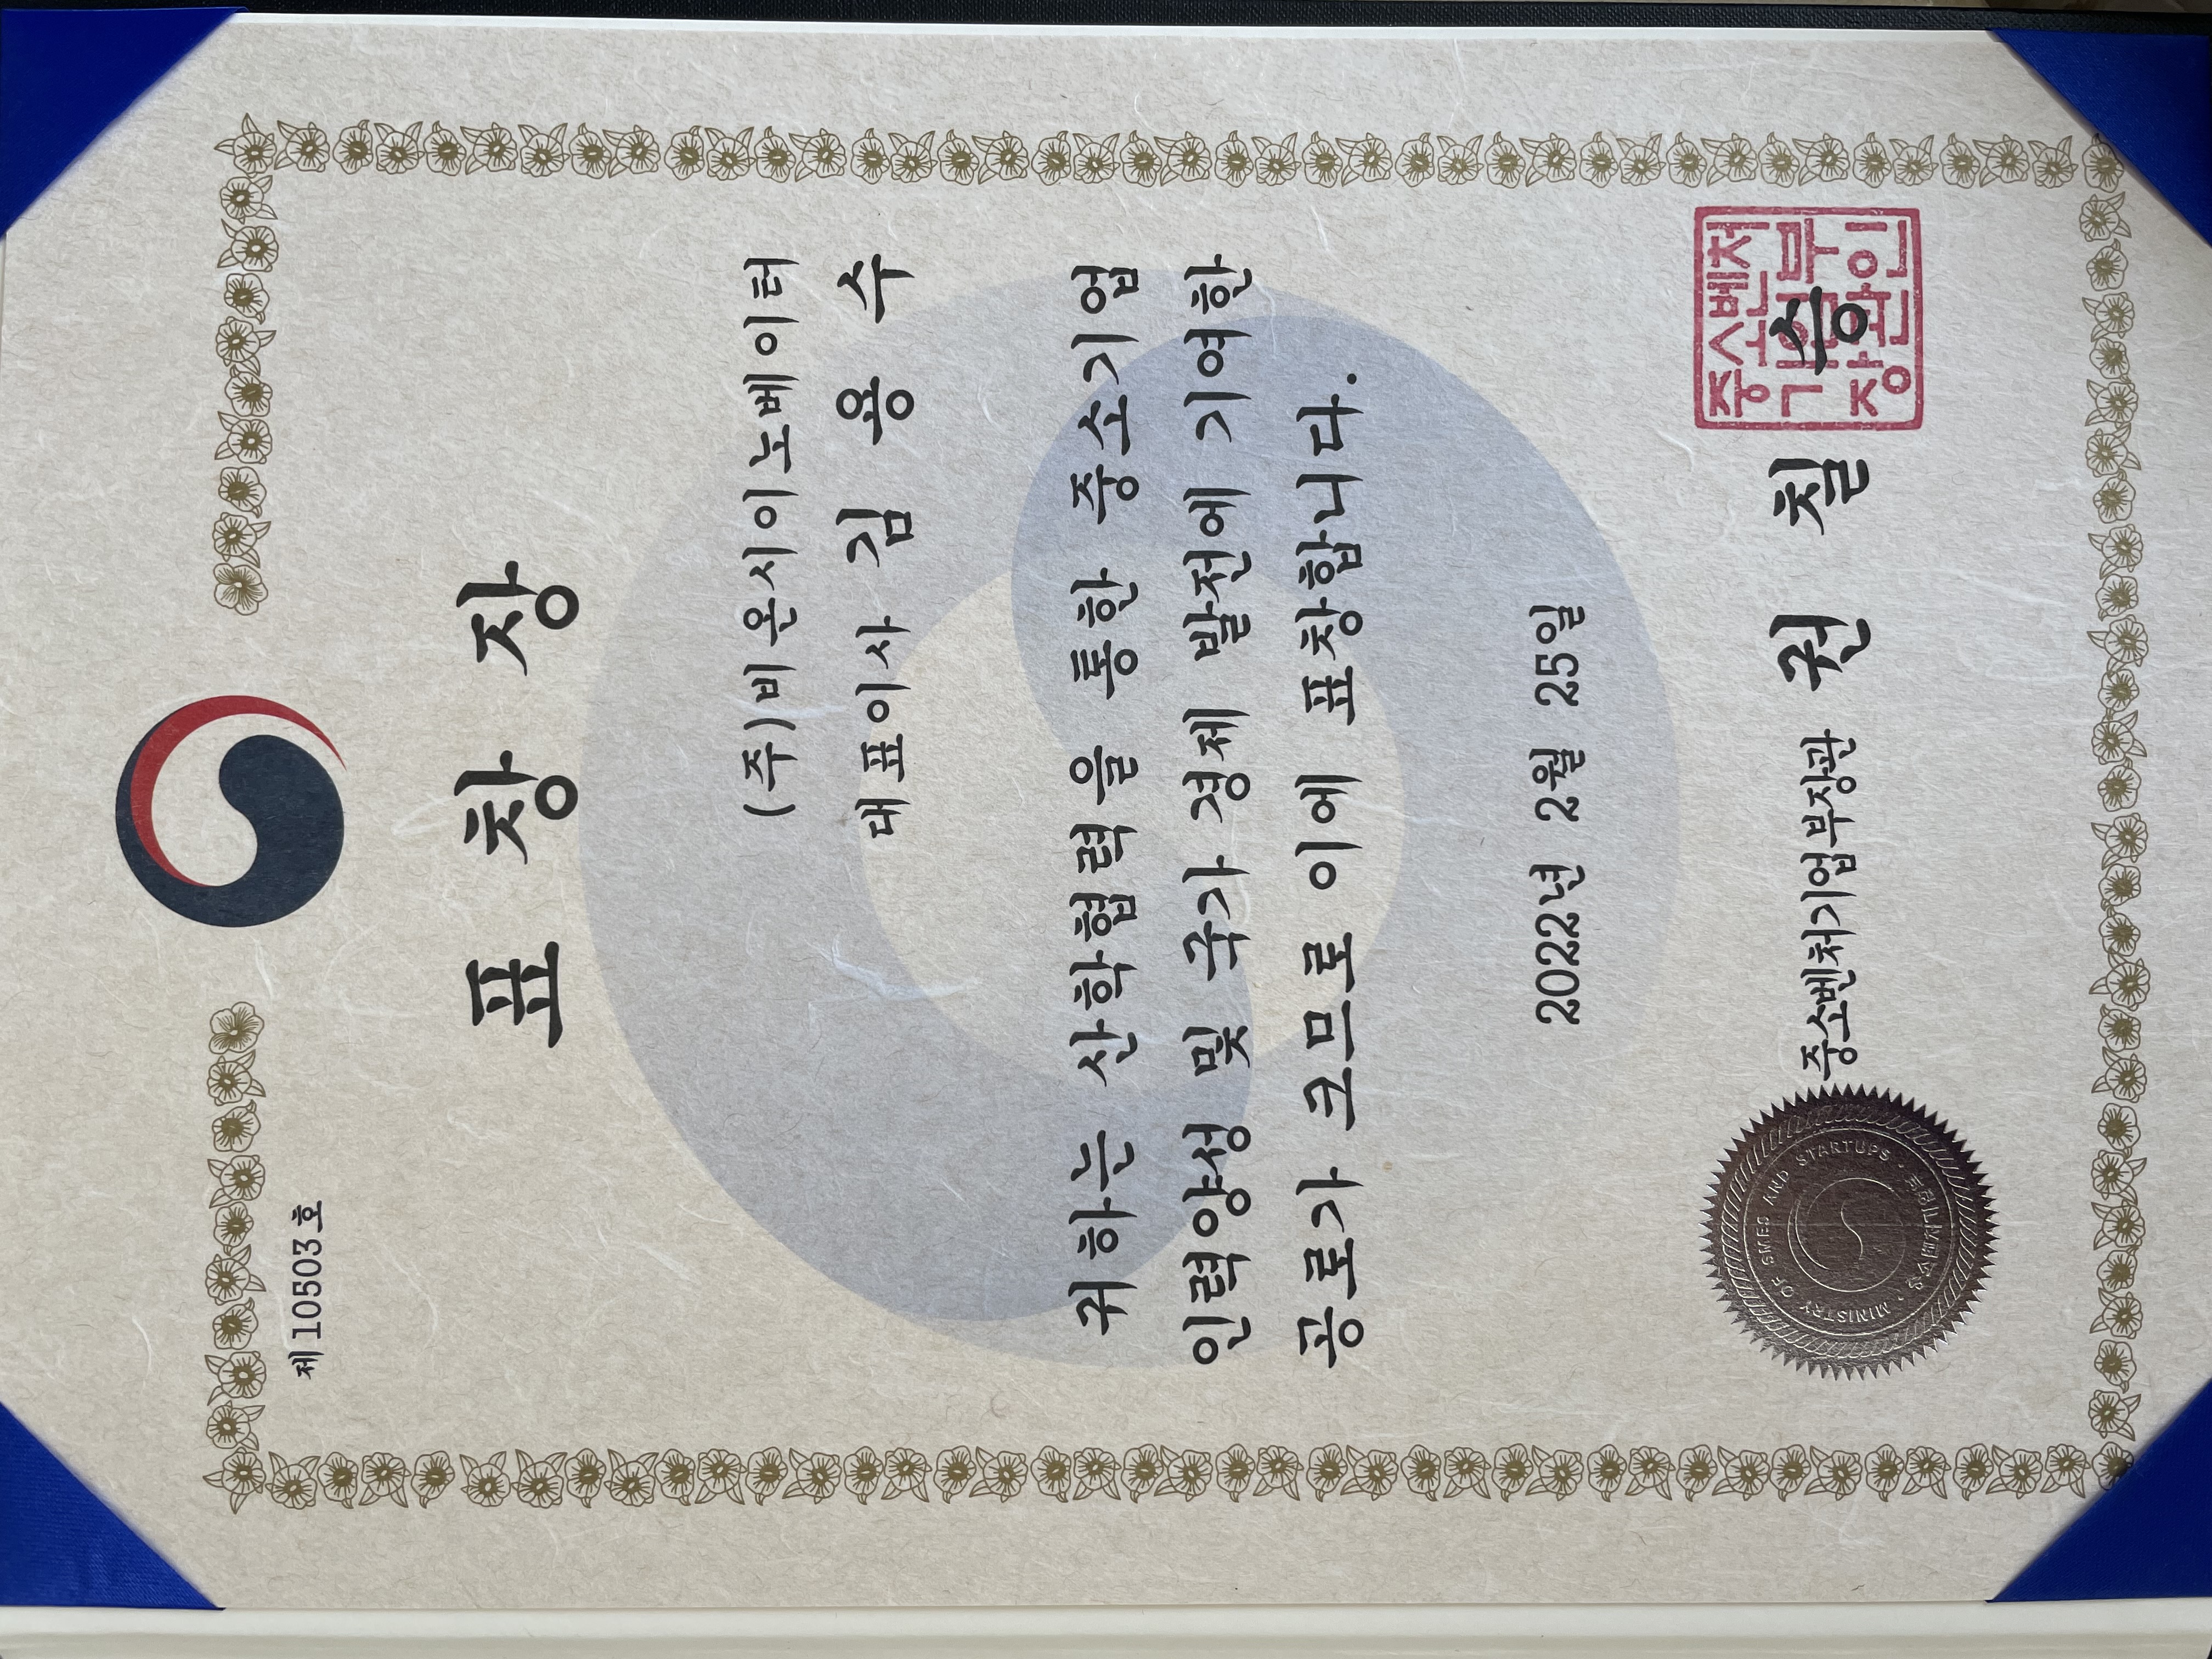 제10503호
표 창 장
(주)비온시이노베이터
대표이사 김 용 수
귀하는 산학협력을 통한 중소기업
인력양성 및 국가 경제 발전에 기여한
공로가 크므로 이에 표창합니다.
2022년 2월 25일
중소벤처기업부장관 권 칠 승
중소벤처
기업부
장관인
MINISTRY OF SMES AND STARTUPS